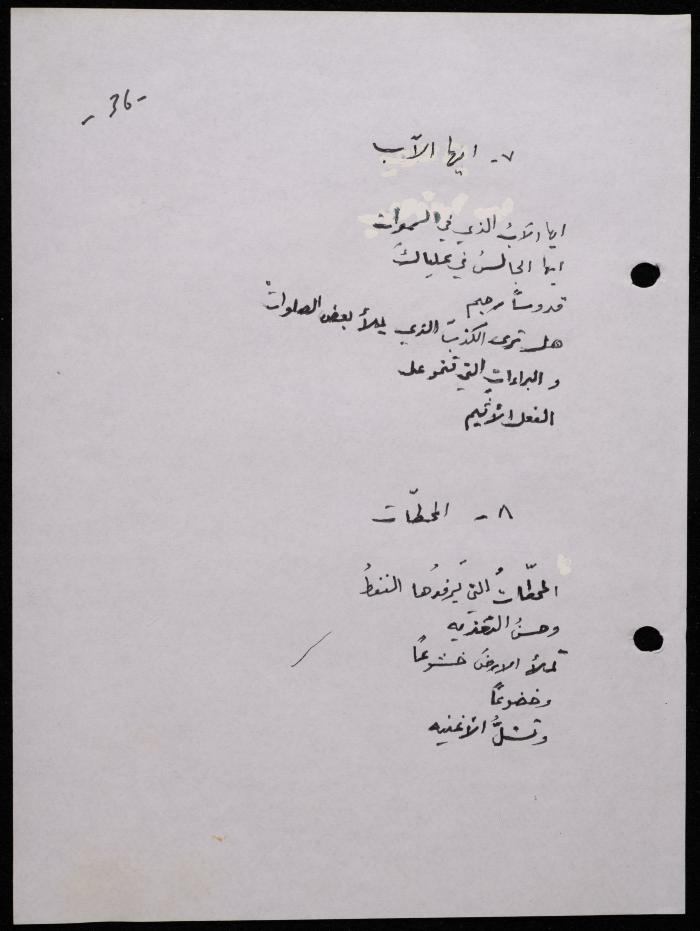 - 36 -
٧- ايها الآب
ايها الآبُ الذي في السموات
ايها الجالسُ في عليائكَ
قدوساً رحيم
هل ترى الكذبَ الذي يملأ بعض الصلواتْ
والبراءاتِ التي تنمو على
الفعل الأثيم
٨ - المحطّات
المحطّاتُ التي يَرفدُها النفطُ
وحسنُ التغذيه
تملأ الارضَ خشوعاً
وخضوعاً
وتشلُّ الأغنيه